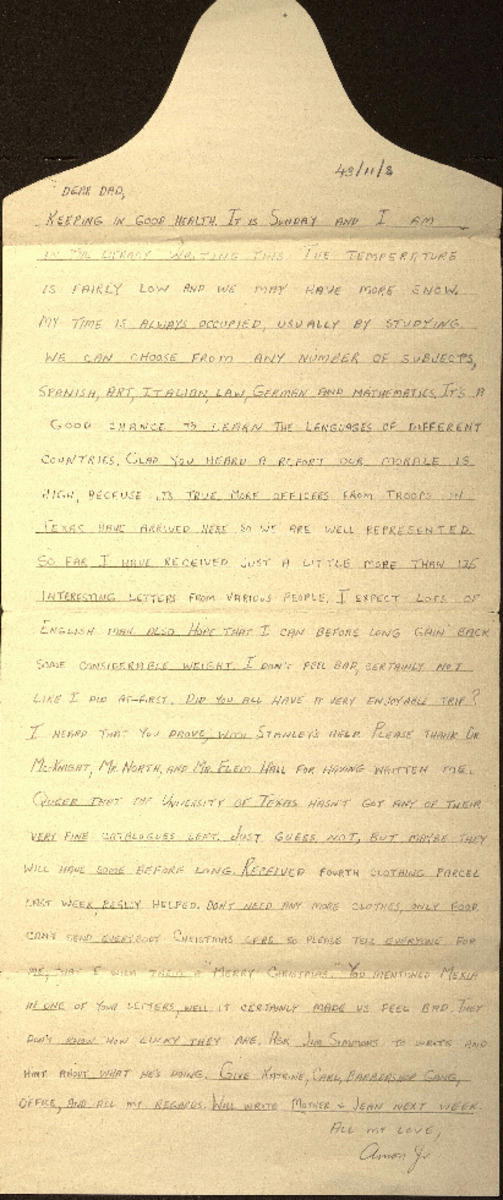 43/11/8
DEAR DAD,
KEEPING IN GOOD HEALTH. IT IS SUNDAY AND I AM
IN THE LIBRARY WRITING THIS. THE TEMPERATURE
IS FAIRLY LOW AND WE MAY HAVE MORE SNOW.
MY TIME IS ALWAYS OCCUPIED, USUALLY BY STUDYING.
WE CAN CHOOSE FROM ANY NUMBER OF SUBJECTS,
SPANISH, ART, ITALIAN, LAW, GERMAN AND MATHEMATICS. IT'S A
GOOD CHANCE TO LEARN THE LANGUAGES OF DIFFERENT
COUNTRIES. GLAD YOU HEARD A REPORT OUR MORALE IS
HIGH, BECAUSE ITS TRUE. MORE OFFICERS FROM TROOPS IN
TEXAS HAVE ARRIVED HERE SO WE ARE WELL REPRESENTED.
SO FAR I HAVE RECEIVED JUST A LITTLE MORE THAN 125
INTERESTING LETTERS FROM VARIOUS PEOPLE. I EXPECT LOTS OF
ENGLISH MAIL ALSO. HOPE THAT I CAN BEFORE LONG GAIN BACK
SOME CONSIDERABLE WEIGHT. I DON'T FEEL BAD, CERTAINLY NOT
LIKE I DID AT-FIRST. DID YOU ALL HAVE A VERY ENJOYABLE TRIP?
I HEARD THAT YOU DROVE, WITH STANLEY'S HELP. PLEASE THANK DR
McKNIGHT, MR. NORTH, AND MR. FLEM HALL FOR HAVING WRITTEN ME.
QUEER THAT THE UNIVERSITY OF TEXAS HASN'T GOT ANY OF THEIR
VERY FINE CATALOGUES LEFT. JUST GUESS NOT, BUT MAYBE THEY
WILL HAVE SOME BEFORE LONG. RECEIVED FOURTH CLOTHING PARCEL
LAST WEEK, REALLY HELPED. DON'T NEED ANY MORE CLOTHES, ONLY FOOD.
CAN'T SEND EVERYBODY CHRISTMAS CARDS SO PLEASE TELL EVERYONE FOR
ME, THAT I WISH THEM A "MERRY CHRISTMAS." YOU MENTIONED MEXIA
IN ONE OF YOUR LETTERS, WELL IT CERTAINLY MADE US FEEL BAD. THEY
DON'T KNOW HOW LUCKY THEY ARE. ASK JIM SIMMONS TO WRITE AND
ABOUT WHAT HE'S DOING. GIVE KATRINE, CARL, BARBERSHOP GANG,
OFFICE, AND ALL MY REGARDS. WILL WRITE MOTHER + JEAN NEXT WEEK.
ALL MY LOVE,
Amon Jr.